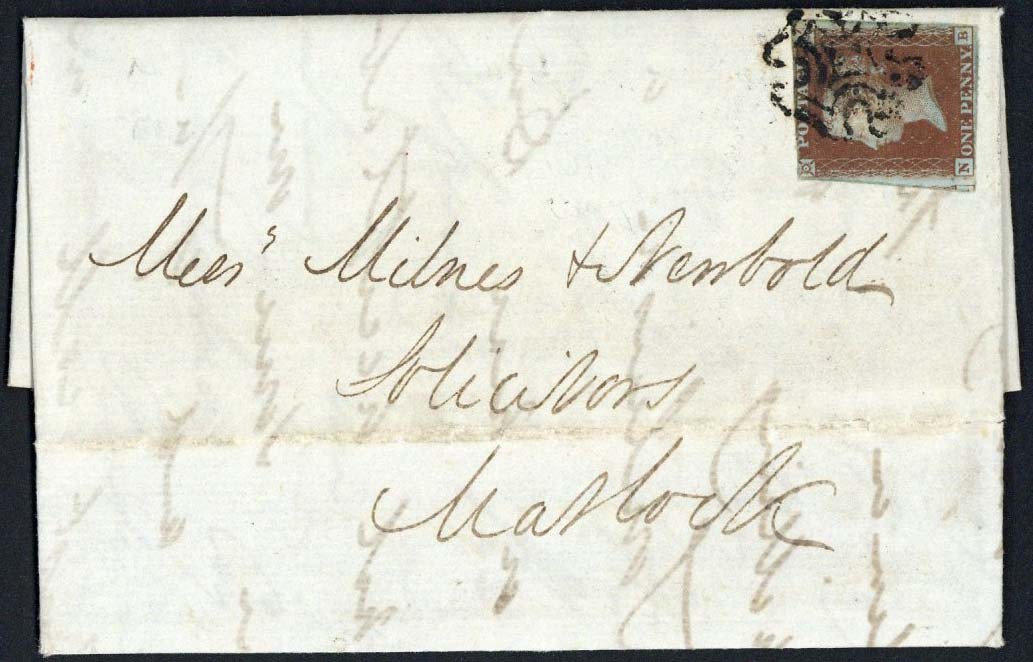 POSTA
ONE PENNY
N B
Mess^rs Milnes & Newbold
Solicitors
Matlock